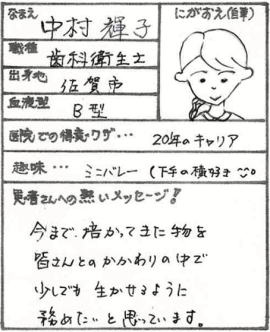 なまえ 中村 輝子
にがおえ(自筆)
職種 歯科衛生士
出身地 佐賀市
血液型 B型
医院での得意ワザ… 20年のキャリア
趣味… ミニバレー (下手の横好き
患者さんへの熱いメッセージ!
今まで、培かってきた物を
皆さんとのかかわりの中で
少しでも 生かせるように
務めたいと思っています。